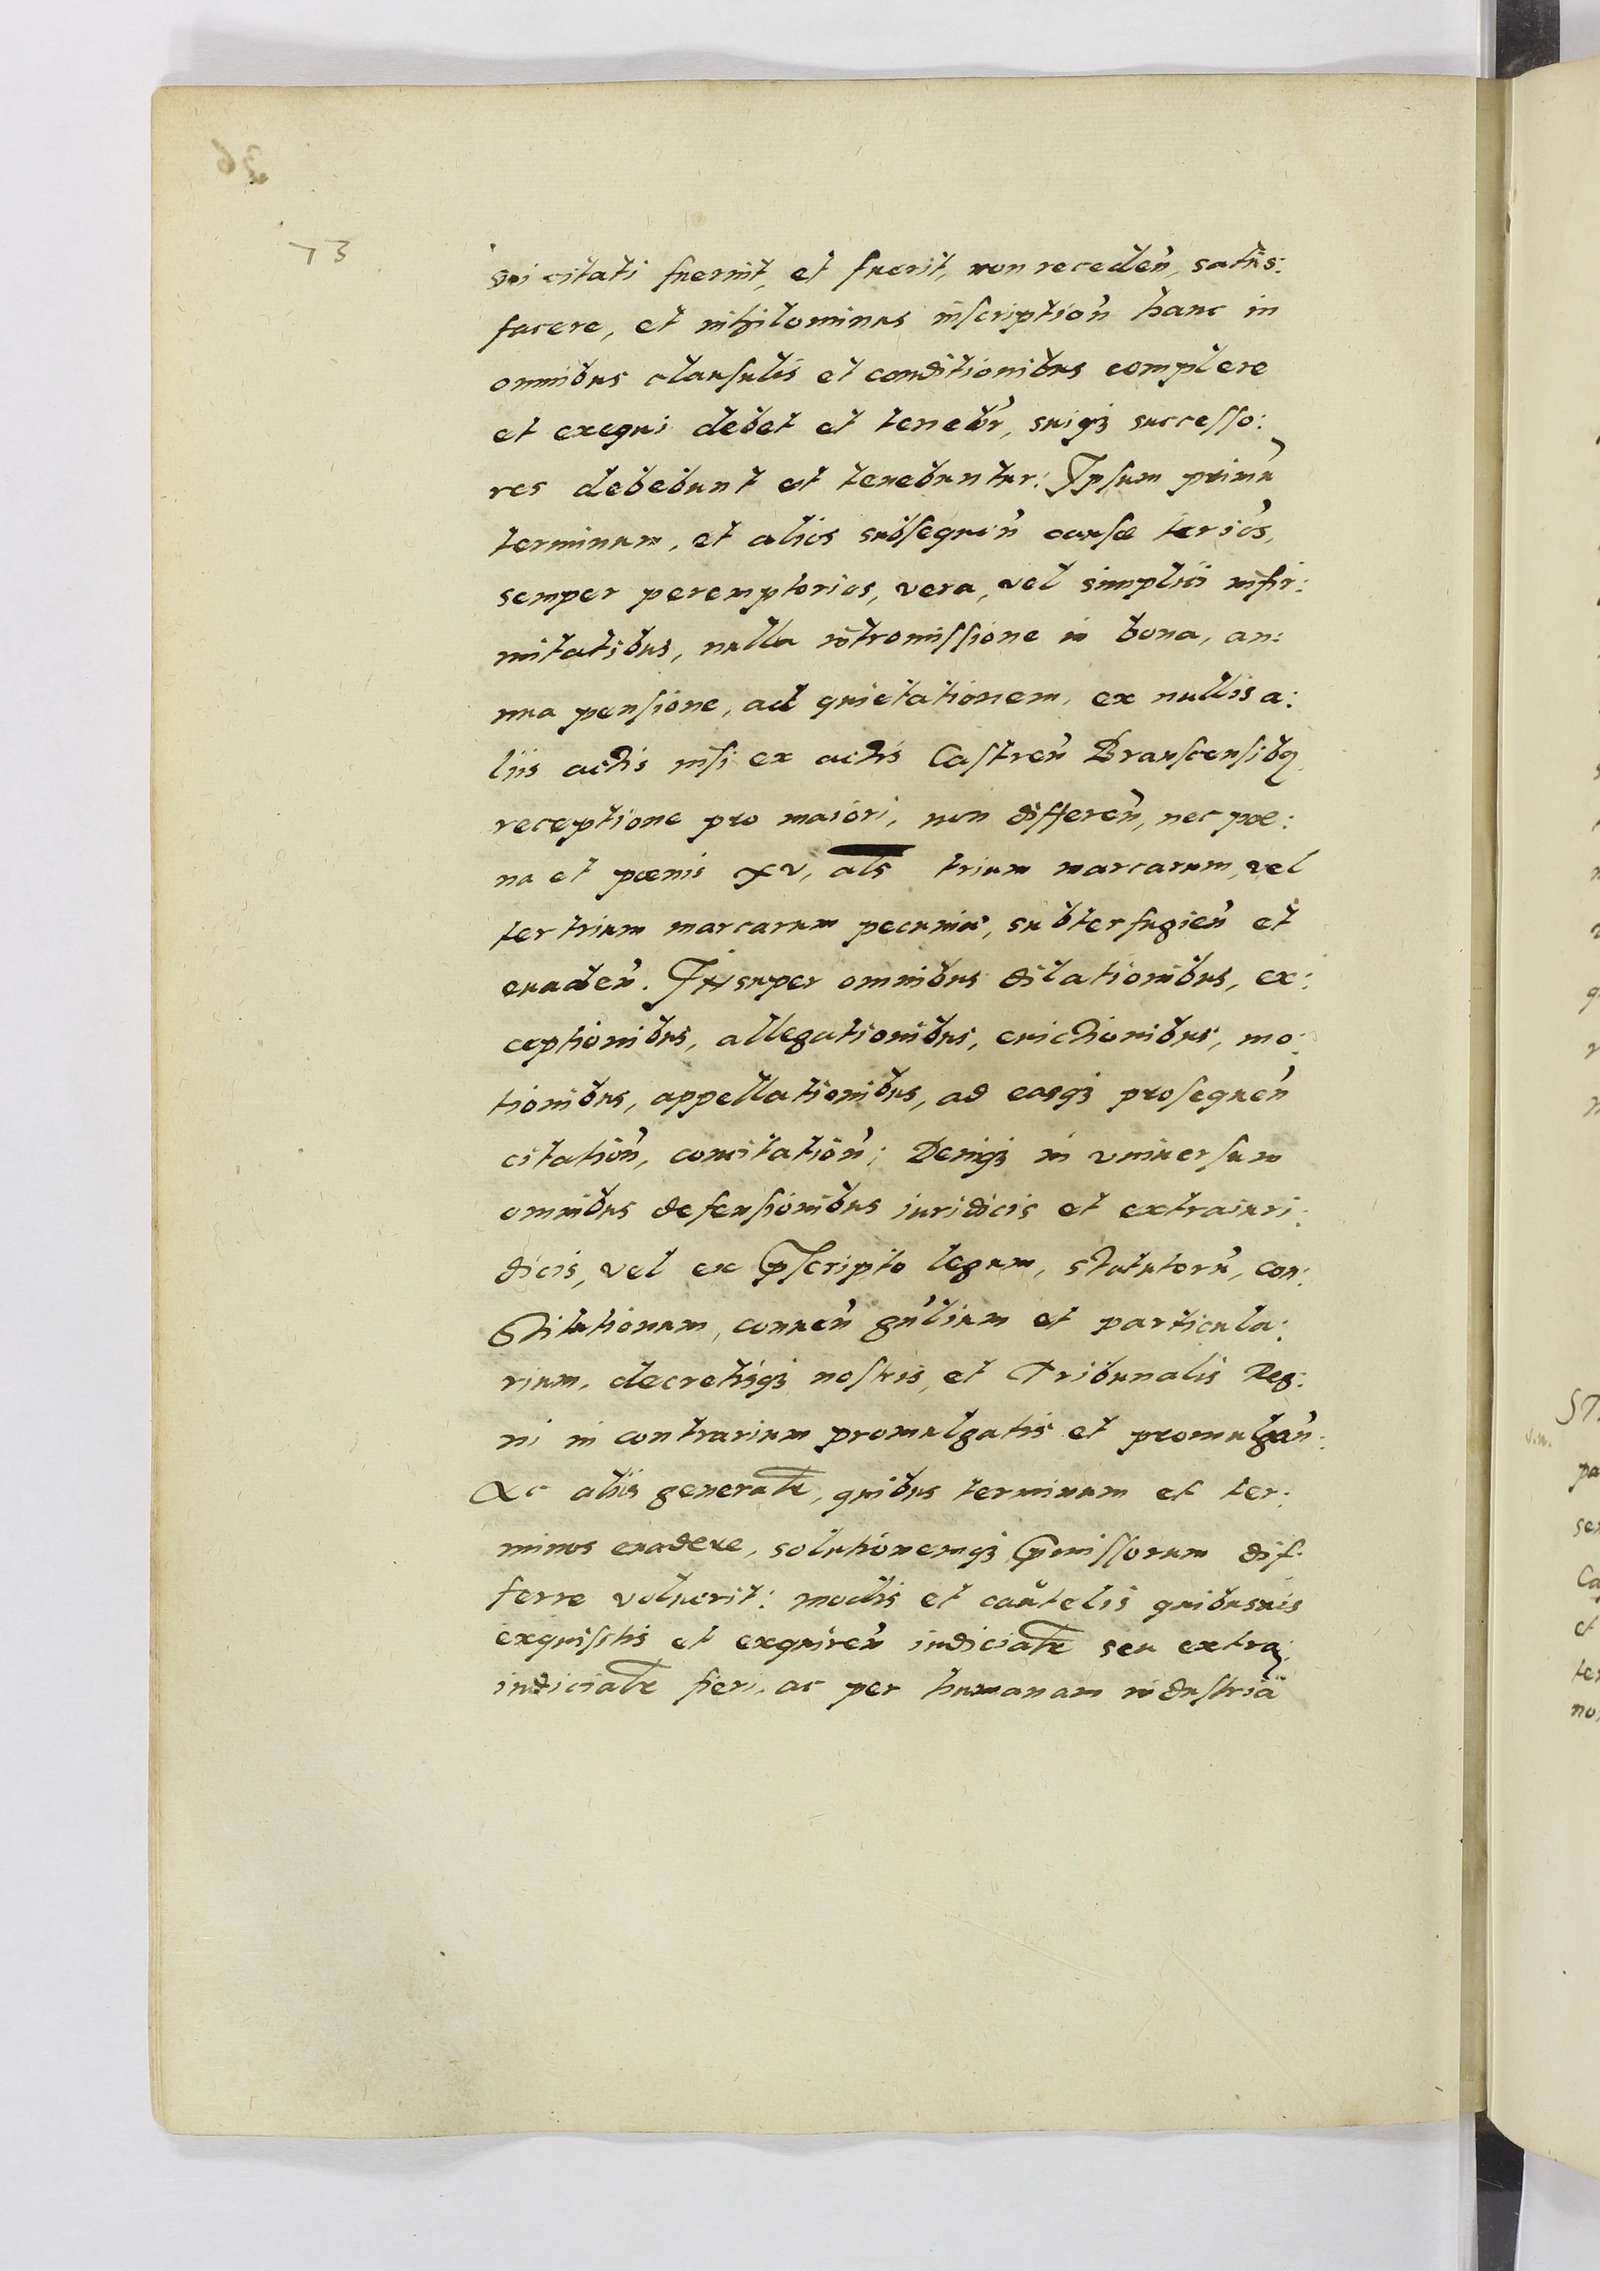 73
sui citati fuerint, et fuerit, non receden, satis:
facere, et nihilominus inscription hanc in
omnibus clausulis et conditionibus complere
et exequi debet et tenebr, suiqȝ successo:
res debebunt et tenebuntur: Ipsum primu
terminum, et alios subsequen causæ terios,
semper peremptorios, vera, vel simplici infir:
mitatibus, nulla intromissione in bona, an:
nua pensione, ad quietationem, ex nullis a:
liis actis nisi ex actis Castren Branscensibq
receptione pro maiori, non differen, nec pœ:
na et pœnis XV, als trium marcarum, vel
ter trium marcarum pecunia, subterfugien et
euaden. Insuper omnibus dilationibus, ex:
ceptionibus, allegationibus, euictionibus, mo:
tionibus, appellationibus, ad easqȝ prosequen
citation, concitation; Deniqȝ in vniuersum
omnibus defensionibus iuridicis et extraiuri:
dicis, vel ex pscripto legum, statutoru, con:
stitutionum, conuen gnlium et particula:
rium, decretisqȝ nostris, et Tribunalis Reg:
ni in contrarium promulgatis et promulgan:
Ac aliis generalr, quibus terminum et ter:
minos euadere, solutionemqȝ pmissorum dif:
ferre voluerit: modis et cautelis quibusuis
exquisitis et exquiren iudicialr seu extra:
iudicialr fieri, ac per humanam industria